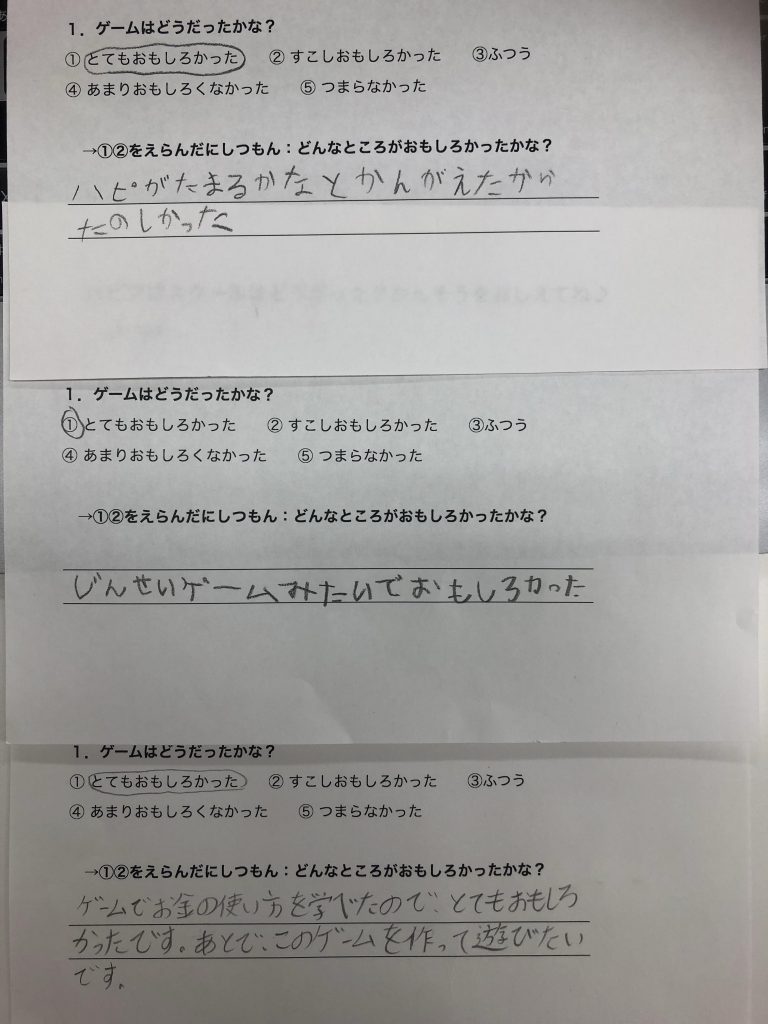 1．ゲームはどうだったかな？
① とてもおもしろかった ② すこしおもしろかった ③ふつう
④ あまりおもしろくなかった ⑤ つまらなかった
→①②をえらんだにしつもん：どんなところがおもしろかったかな？
ハピがたまるかなとかんがえたから
たのしかった
1．ゲームはどうだったかな？
①とてもおもしろかった ② すこしおもしろかった ③ふつう
④ あまりおもしろくなかった ⑤ つまらなかった
→①②をえらんだにしつもん：どんなところがおもしろかったかな？
じんせいゲームみたいでおもしろかった
1．ゲームはどうだったかな？
① とてもおもしろかった ② すこしおもしろかった ③ふつう
④ あまりおもしろくなかった ⑤ つまらなかった
→①②をえらんだにしつもん：どんなところがおもしろかったかな？
ゲームでお金の使い方を学べたので、とてもおもしろ
かったです。あとで、このゲームを作って遊びたい
です。